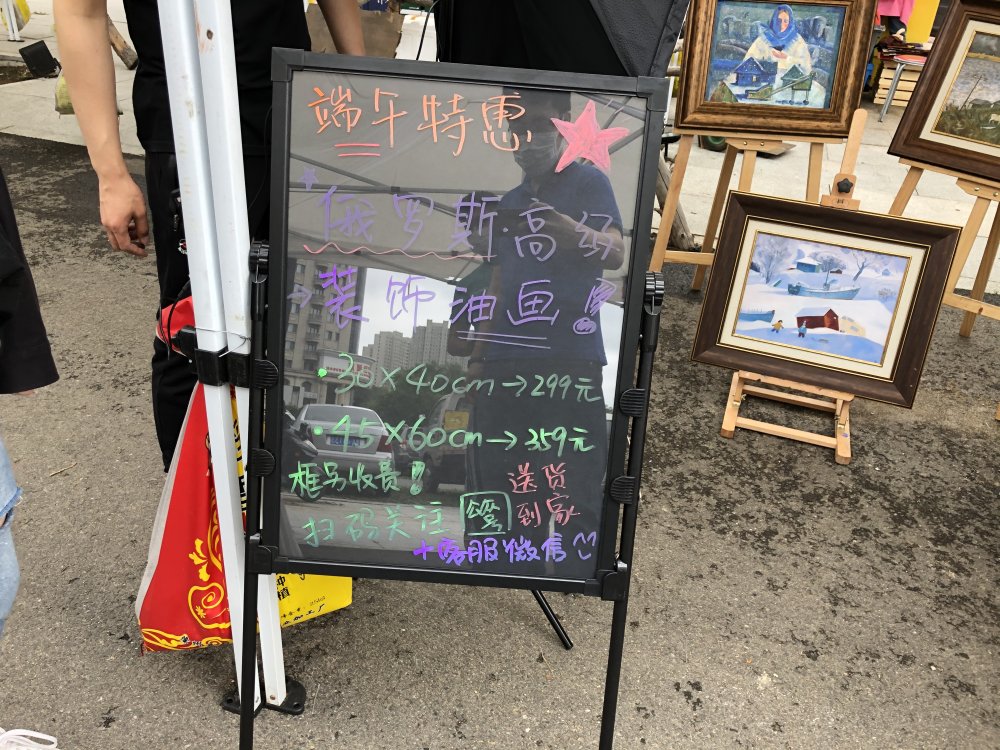 端午特惠
俄罗斯·高级
装饰油画!
·30×40cm→299元
·45×60cm→359元
框另收费!
送货
到家
扫码关注
+客服微信